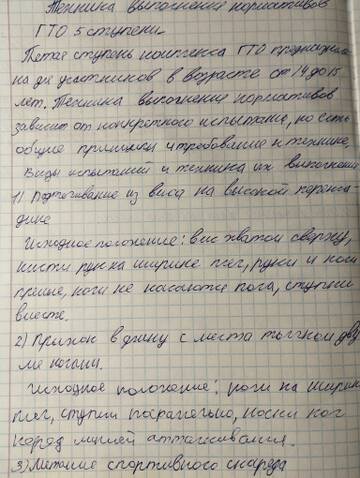 Техника выполнения нормативов
ГТО 5 ступени.
Пятая ступень комплекса ГТО предназначе
на для участников в возрасте от 14 до 15
лет. Техника выполнения нормативов
зависит от конкретного испытания, но есть
общие принципы и требования к технике.
Виды испытаний и техника их выполнения
1) Подтягивание из виса на высокой перекла
дине
Исходное положение: вис хватом сверху,
кисти рук на ширине плеч, руки и ноги
прямые, ноги не касаются пола, ступни
вместе.
2) Прыжок в длину с места толчком дву
мя ногами.
Исходное положение: ноги на ширине
плеч, ступни параллельно, носки ног
перед линией отталкивания.
3) Метание спортивного снаряда